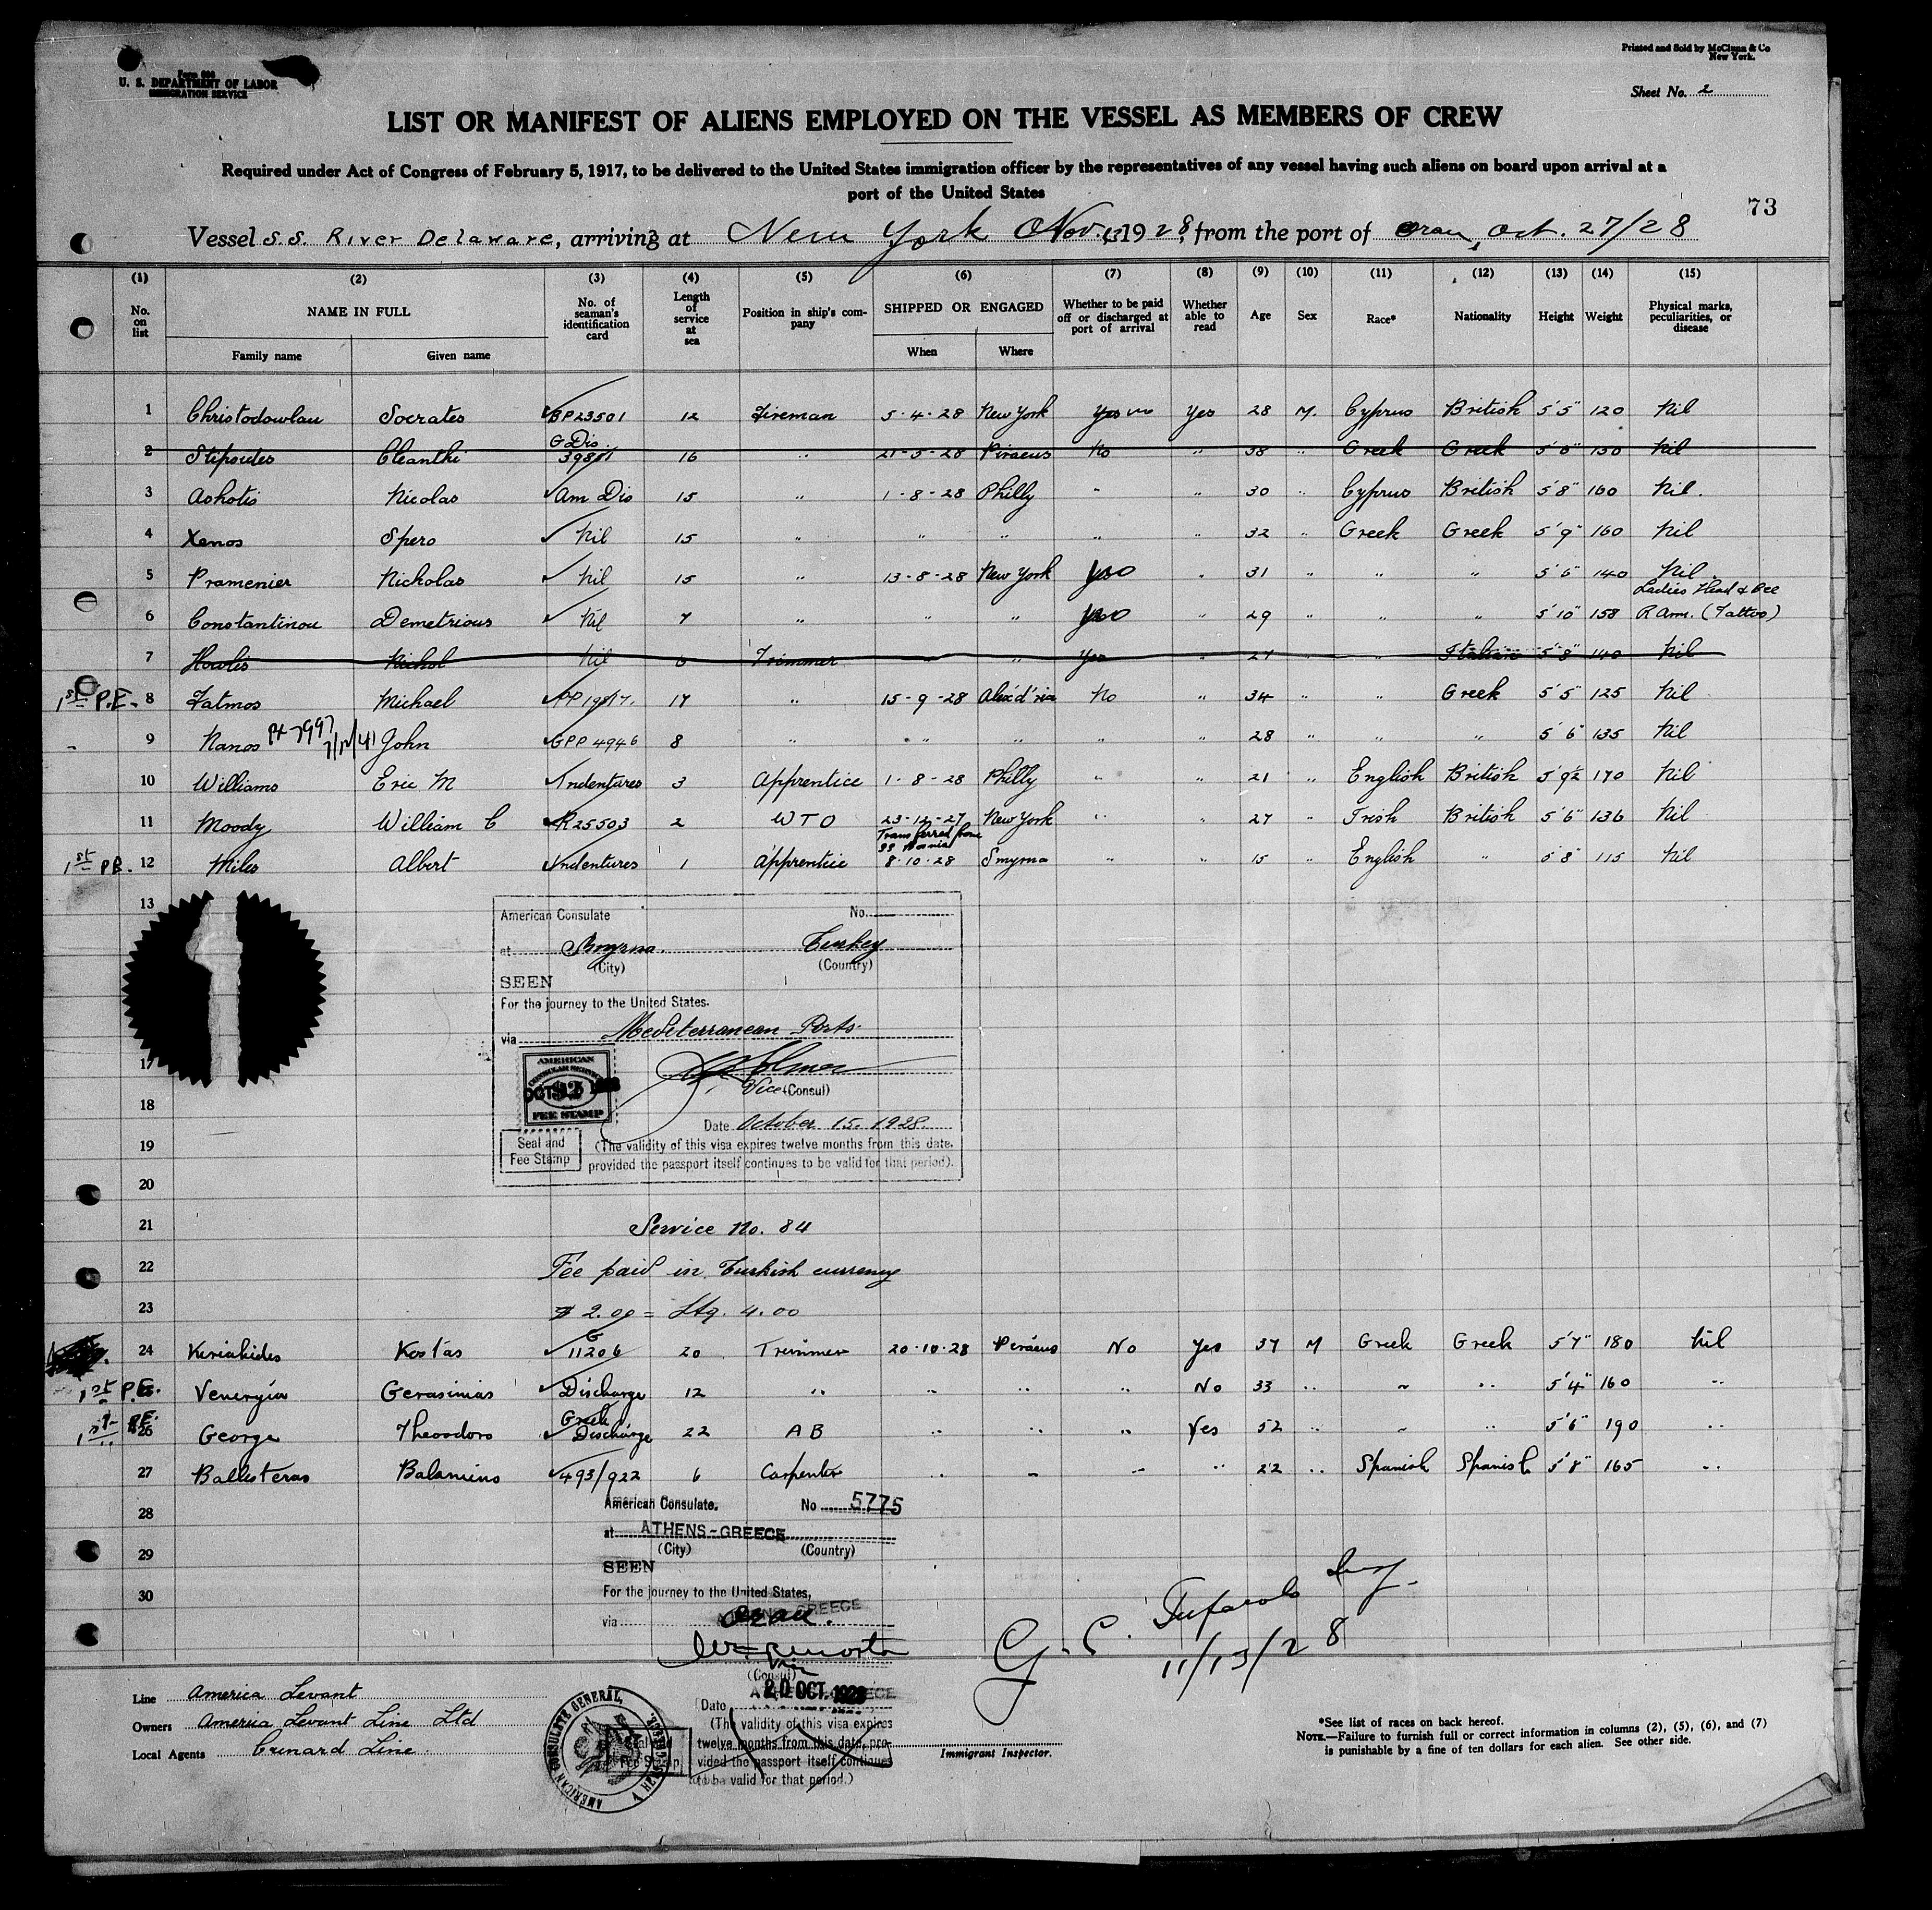 Form 680
U. S. DEPARTMENT OF LABOR
IMMIGRATION SERVICE
Printed and Sold by McClunn & Co
New York.
Sheet No. 2
LIST OR MANIFEST OF ALIENS EMPLOYED ON THE VESSEL AS MEMBERS OF CREW
Required under Act of Congress of February 5, 1917, to be delivered to the United States immigration officer by the representatives of any vessel having such aliens on board upon arrival at a
port of the United States
73
Vessel S.S. River Delaware, arriving at New York Nov. 13 1928, from the port of Oran, Oct. 27/28
(1) (2) (3) (4) (5) (6) (7) (8) (9) (10) (11) (12) (13) (14) (15)
No. on list NAME IN FULL Family name Given name No. of seaman's identification card Length of service at sea Position in ship's company SHIPPED OR ENGAGED When Where Whether to be paid off or discharged at port of arrival Whether able to read Age Sex Race* Nationality Height Weight Physical marks, peculiarities, or disease
1 Christodowlau Socrates BP23501 12 Fireman 5-4-28 New York Yes Yes 28 M. Cyprus British 5'5" 120 Nil
2 Stipsides Cleanthi G Dis. 39801 16 " 21-5-28 Piraeus No " 38 " Greek Greek 5'6" 130 Nil
3 Ashotis Nicolas Am Dis 15 " 1-8-28 Philly " " 30 " Cyprus British 5'8" 160 Nil.
4 Xenos Spero Nil 15 " " " " " 32 " Greek Greek 5'9" 160 Nil
5 Pramenier Nicholas Nil 15 " 13-8-28 New York " 31 " " " 5'6" 140 Nil
6 Constantinou Demetrious Nil 7 " " " " 29 " " " 5'10" 158 Ladies Head & Bee R Arm. (Tattoo)
7 Howlis Nichol Nil 6 Trimmer " " Yes " 27 " " Italian 5'8" 140 Nil
1st P.E. 8 Fatmos Michael 17 " 15-9-28 Alex'd'ria No " 34 " " Greek 5'5" 125 Nil
9 Nanos John GPP 4946 8 " " " " " 28 " " " 5'6" 135 Nil
10 Williams Eric M Indentures 3 Apprentice 1-8-28 Philly " " 21 " English British 5'9½ 170 Nil
11 Moody William C R25503 2 WTO 23-12-27 New York " " 27 " Irish British 5'6" 136 Nil
Transferred from SS
1st P.E. 12 Miles Albert Indentures 1 Apprentice 8-10-28 Smyrna " " 15 " English " 5'8" 115 Nil
13
American Consulate No.
at Smyrna. Turkey
(City) (Country)
SEEN
For the journey to the United States.
via Mediterranean Ports.
17
AMERICAN
CONSULAR SERVICE
$2
FEE STAMP
Vice (Consul)
18
Date October 15. 1928.
19
Seal and
Fee Stamp
(The validity of this visa expires twelve months from this date.
provided the passport itself continues to be valid for that period).
20
21 Service No. 84
22 Fee paid in Turkish currency
23 $ 2.00 = Ltq. 4.00
24 Kiriakides Kostas G 11206 20 Trimmer 20-10-28 Piraeus No Yes 37 M Greek Greek 5'7" 180 Nil
1st P.E. Veneryia Gerasimias Discharge 12 " " " " No 33 " " " 5'4" 160 "
1st P.E. 26 George Theodoro Greek Discharge 22 AB " " " Yes 52 " " " 5'6" 190 "
27 Ballesteras Balamins 493/922 6 Carpenter " " " " 22 " Spanish Spanish 5'8" 165 "
28
American Consulate. No 5775
at ATHENS-GREECE
(City) (Country)
29
SEEN
30
For the journey to the United States,
via Oran.
(Consul)
Date 20 OCT. 1928
(The validity of this visa expires
twelve months from this date, pro-
vided the passport itself continues
to be valid for that period.)
AMERICAN CONSULATE GENERAL,
G. C. Tufarolo Insp.
11/13/28
Immigrant Inspector.
Line America Levant
Owners America Levant Line Ltd
Local Agents Cunard Line.
*See list of races on back hereof.
NOTE.—Failure to furnish full or correct information in columns (2), (5), (6), and (7)
is punishable by a fine of ten dollars for each alien. See other side.